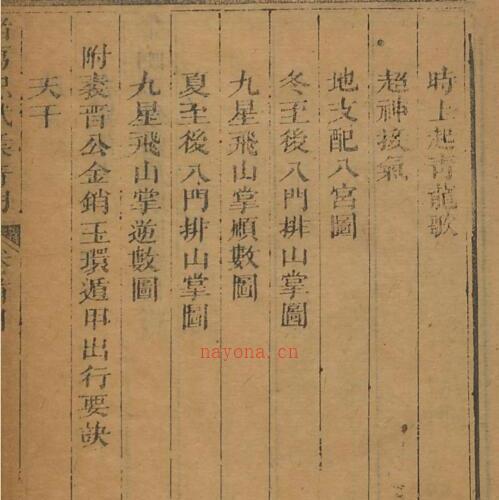 時上起青龍歌
超神接氣
地支配八宮圖
冬至後八門排山掌圖
九星飛山掌順數圖
夏至後八門排山掌圖
九星飛山掌逆數圖
附裴晉公金銷玉環遁甲出行要訣
天干
nayona.cn